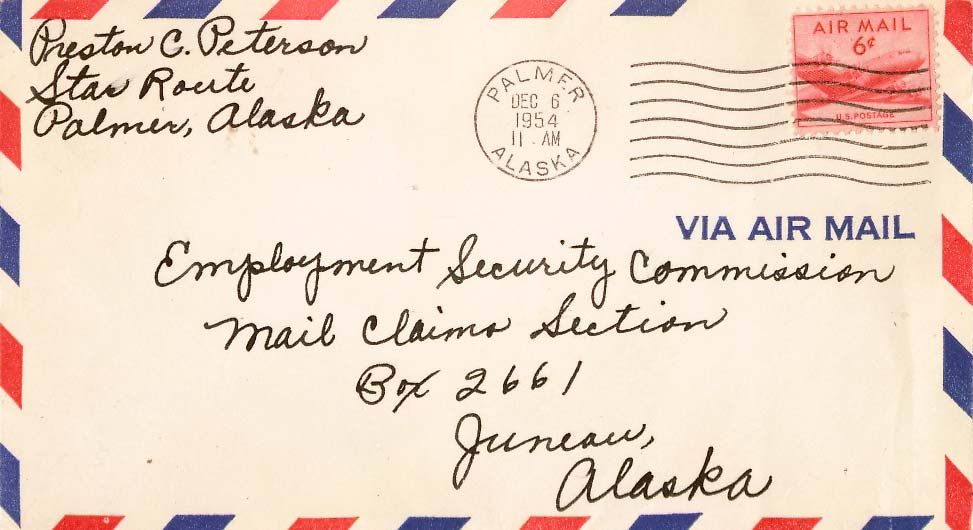 Preston C. Peterson
Star Route
Palmer, Alaska
PALMER
DEC 6
1954
11 - AM
ALASKA
AIR MAIL
6¢
U.S. POSTAGE
VIA AIR MAIL
Employment Security Commission
Mail Claims Section
Box 2661
Juneau,
Alaska